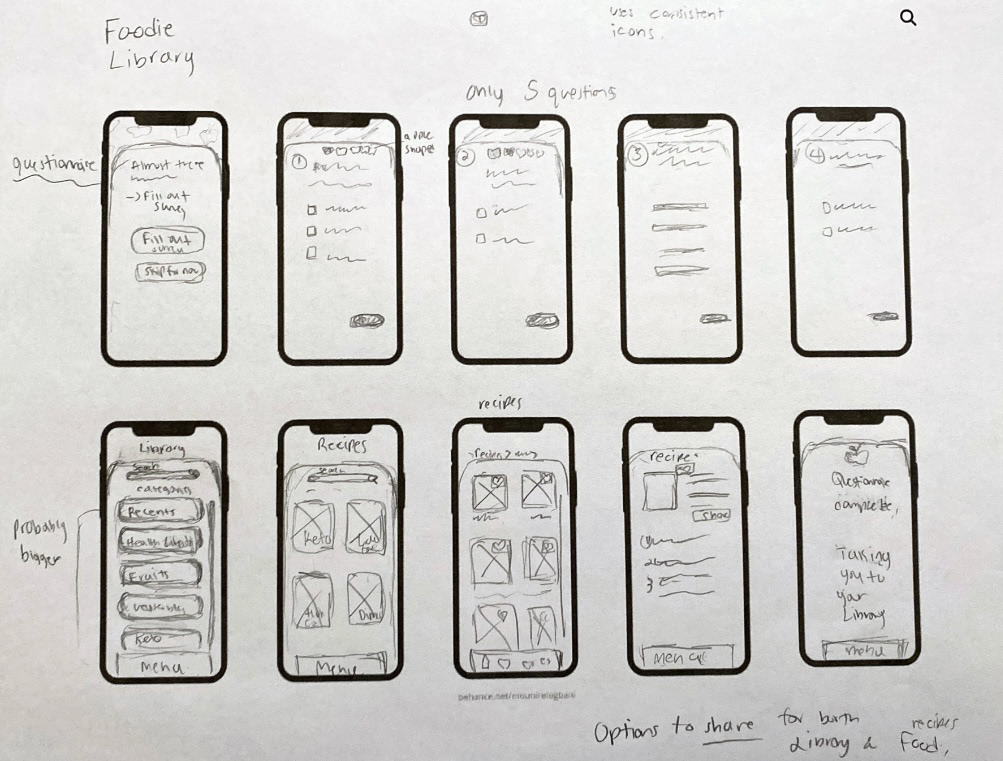 Foodie
Library
uses consistent
icons.
only 5 questions
questionnaire
apple
shapes
Almost there
→ Fill out
survey
Fill out
survey
Skip for now
1
2
3
4
recipes
probably
bigger
Library
Search
categories
Recents
Health
Fruits
Keto
Menu
Recipes
Search
Keto
Menu
recipe:
share
1
2
3
Menu
Questionnaire
complete,
Taking
you to
your
Library
menu
behance.net/
Options to share for both recipes
Library & Food,